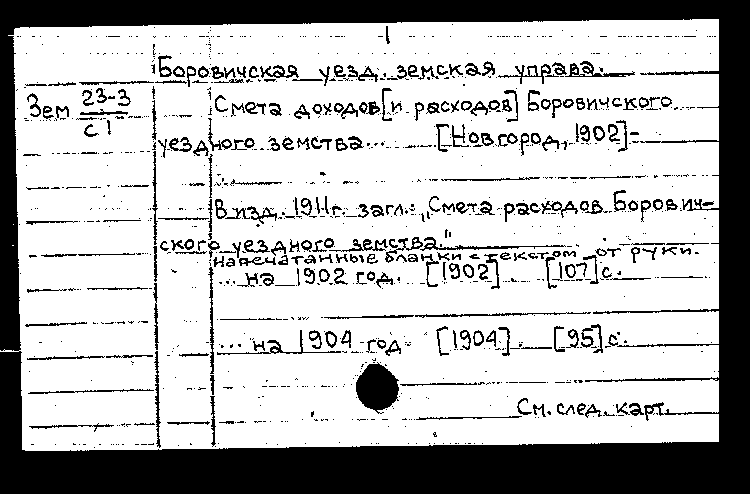 1
Боровичская уезд. земская управа.
Зем 23-3
с 1
Смета доходов [и расходов] Боровичского
уездного земства... [Новгород, 1902]-
...
В изд. 1911г. загл.: „Смета расходов Борович-
ского уездного земства."
напечатанные бланки с текстом от руки.
... на 1902 год. [1902]. [107] с.
... на 1904 год. [1904]. [95] с.
См. след. карт.